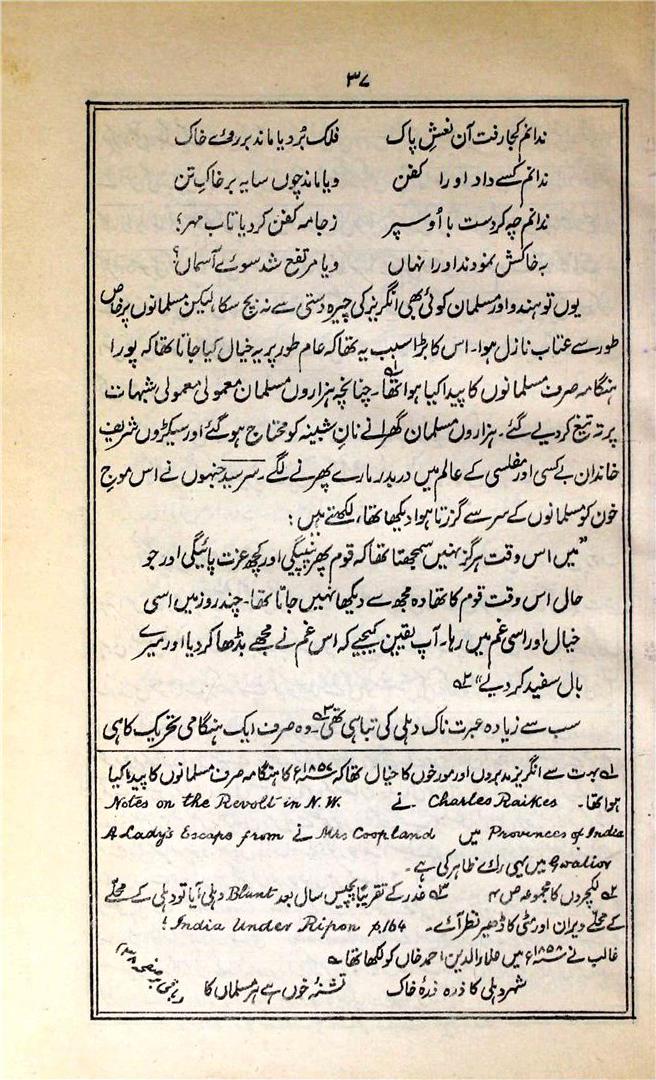 ۳۷
ندانم کجا رفت آن نعش پاک فلک بُرد یا ماند بر روئے خاک
ندانم کسے داد او را کفن و یا ماند چوں سایہ بر خاک تن
ندانم چہ کردست با اُو سپہر زجامہ کفن کرد یا تاب مہر؟
بہ خاکش نمودند او را نہاں و یا مرتفع شد سوئے آسماں؟
یوں تو ہندو اور مسلمان کوئی بھی انگریز کی چیرہ دستی سے نہ بچ سکا لیکن مسلمانوں پر خاص
طور سے عتاب نازل ہوا۔ اس کا بڑا سبب یہ تھا کہ عام طور پر یہ خیال کیا جاتا تھا کہ پورا
ہنگامہ صرف مسلمانوں کا پیدا کیا ہوا تھا۱؎۔ چنانچہ ہزاروں مسلمان معمولی معمولی شبہات
پر تہ تیغ کر دیے گئے۔ ہزاروں مسلمان گھرانے نانِ شبینہ کو محتاج ہو گئے اور سیکڑوں شریف
خاندان بے کسی اور مفلسی کے عالم میں در بدر مارے پھرنے لگے۔ سرسید جنہوں نے اس موجِ
خون کو مسلمانوں کے سر سے گزرتا ہوا دیکھا تھا، لکھتے ہیں:
"میں اس وقت ہرگز نہیں سمجھتا تھا کہ قوم پھر پنپیگی اور کچھ عزت پائیگی اور جو
حال اس وقت قوم کا تھا وہ مجھ سے دیکھا نہیں جاتا تھا۔ چند روز میں اسی
خیال اور اسی غم میں رہا۔ آپ یقین کیجیے کہ اس غم نے مجھے بڈھا کر دیا اور میرے
بال سفید کر دیے" ۲؎
سب سے زیادہ عبرت ناک دہلی کی تباہی تھی۳؎۔ وہ صرف ایک ہنگامی تحریک کا ہی
۱؎ بہت سے انگریز مدبروں اور مورخوں کا خیال تھا کہ ۱۸۵۷ء کا ہنگامہ صرف مسلمانوں کا پیدا کیا
ہوا تھا۔ Charles Raikes نے Notes on the Revolt in N.W.
Provinces of India میں Mrs Coopland نے A Lady's Escape from
Gwalior میں یہی رائے ظاہر کی ہے۔
۲؎ لکچروں کا مجموعہ ص ۳؎ غدر کے تقریباً پچیس سال بعد Blunt دہلی آیا تو دہلی کے محلے
کے محلے ویران اور مٹی کا ڈھیر نظر آئے۔ India Under Ripon p.164 !
غالب نے ۱۸۵۸ء میں علاء الدین احمد خاں کو لکھا تھا ؎
شہر دہلی کا ذرہ ذرۂ خاک تشنۂ خوں ہے ہر مسلماں کا
(باقی بر صفحہ ۳۸)